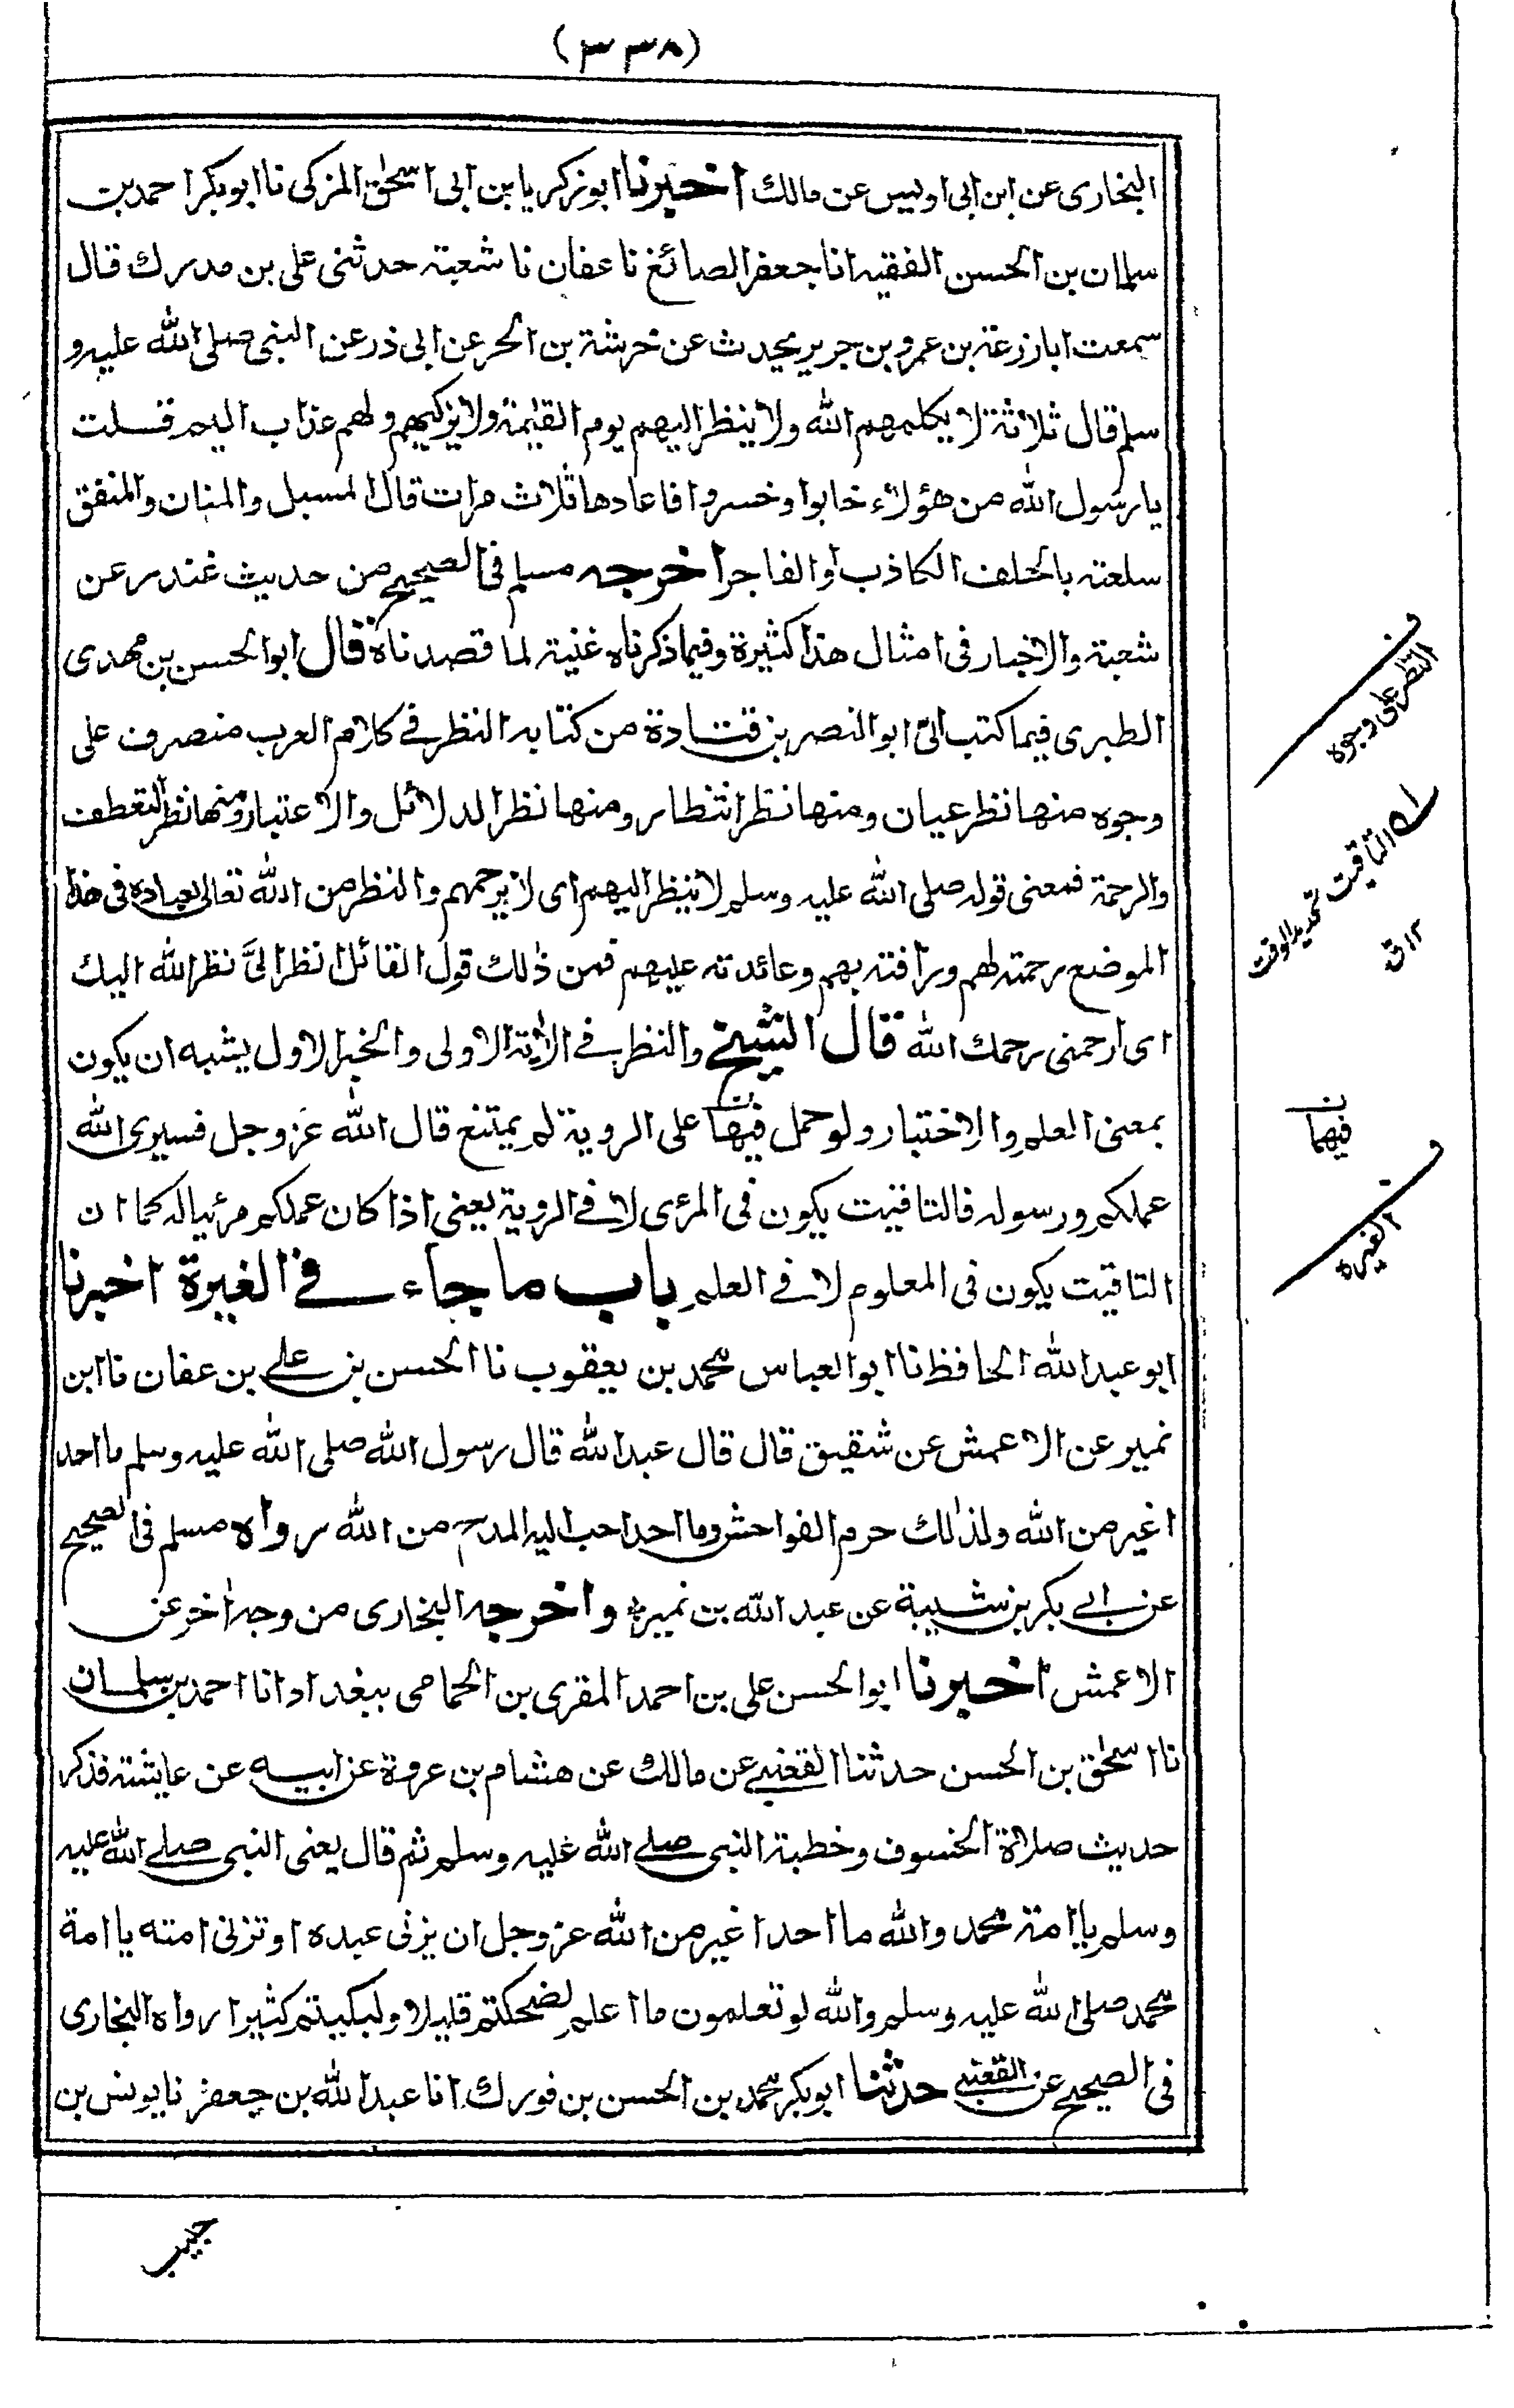 (٣٣٨)
البخارى عن ابن ابى اويس عن مالك اخبرنا ابو زكريا بن ابى اسحٰق المزكى نا ابو بكر احمد بن
سلمان بن الحسن الفقيه انا جعفر الصائغ نا عفان نا شعبة حدثنى على بن مدرك قال
سمعت ابا زرعة بن عمرو بن جرير يحدث عن خرشة بن الحر عن ابى ذر عن النبى صلى الله عليه و
سلم قال ثلاثة لا يكلمهم الله ولا ينظر اليهم يوم القيٰمة ولا يزكيهم ولهم عذاب اليم قلت
يا رسول الله من هؤلاء خابوا وخسروا فاعادها ثلاث مرات قال المسبل والمنان والمنفق
سلعته بالحلف الكاذب او الفاجر اخرجه مسلم فى الصحيح من حديث غندر عن
شعبة والاخبار فى امثال هذا كثيرة وفيما ذكرناه غنية لما قصدناه قال ابو الحسن بن مهدى
الطبرى فيما كتب الىّ ابو النصر بن قتادة من كتابه النظر فى كلام العرب منصرف على
وجوه منها نظر عيان ومنها نظر انتظار ومنها نظر الدلائل والاعتبار ومنها نظر التعطف
والرحمة فمعنى قوله صلى الله عليه وسلم لا ينظر اليهم اى لا يرحمهم والنظر من الله تعالى لعباده فى هذا
الموضع رحمته لهم ورافته بهم وعائدته عليهم فمن ذٰلك قول القائل انظر الىَّ نظر الله اليك
اى ارحمنى رحمك الله قال الشيخ والنظر فى الاٰية الاولى والخبر الاول يشبه ان يكون
بمعنى العلم والاختبار ولو حمل فيها على الروية لم يمتنع قال الله عز وجل فسيرى الله
عملكم ورسوله فالتاقيت يكون فى المرئى لا فى الروية يعنى اذا كان عملكم مرئيا له كما ان
التاقيت يكون فى المعلوم لا فى العلم باب ما جاء فى الغيرة اخبرنا
ابو عبد الله الحافظ نا ابو العباس محمد بن يعقوب نا الحسن بن على بن عفان نا ابن
نمير عن الاعمش عن شقيق قال قال عبد الله قال رسول الله صلى الله عليه وسلم ما احد
اغير من الله ولذٰلك حرم الفواحش وما احد احب اليه المدح من الله رواه مسلم فى الصحيح
عن ابى بكر بن شيبة عن عبد الله بن نمير واخرجه البخارى من وجه اٰخر عن
الاعمش اخبرنا ابو الحسن على بن احمد المقرى بن الحمامى ببغداد انا احمد بن سلمان
نا اسحٰق بن الحسن حدثنا القعنبى عن مالك عن هشام بن عروة عن ابيه عن عايشة فذكر
حديث صلاة الخسوف وخطبة النبى صلى الله عليه وسلم ثم قال يعنى النبى صلى الله عليه
وسلم يا امة محمد والله ما احد اغير من الله عز وجل ان يزنى عبده او تزنى امته يا امة
محمد صلى الله عليه وسلم والله لو تعلمون ما اعلم لضحكتم قليلا ولبكيتم كثيرا رواه البخارى
فى الصحيح عن القعنبى حدثنا ابو بكر محمد بن الحسن بن فورك انا عبد الله بن جعفر نا يونس بن
النظر على وجوه
التاقيت تحديد الوقت
١٢ ق
ن
فيهما
الغيرة
حبيب